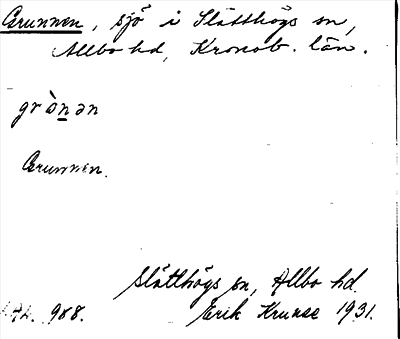 Grunnen, sjö i Slätthögs sn,
Allbo hd, Kronob. län.
grònən
Grunnen.
Slätthögs sn, Allbo hd.
988. Erik Kruuse 1931.